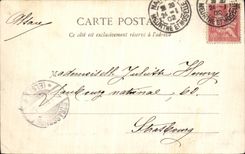 CARTE POSTALE
Ce côté est exclusivement réservé à l'adresse
Alsace
Mademoiselle Juliette Henry
Faubourg national, 60
Strasbourg